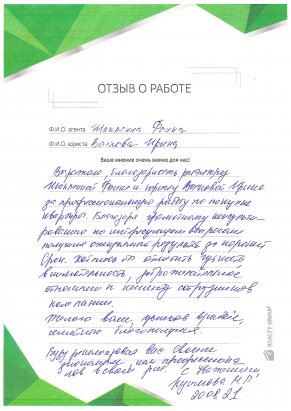 ОТЗЫВ О РАБОТЕ
Ф.И.О. агента Шаклеина Фаина
Ф.И.О. юриста Волкова Ирина
Ваше мнение очень важно для нас!
Выражаю благодарность риэлтору
Фаине и юристу Волковой Ирине
за профессиональную работу по покупке
квартиры. Благодаря грамотному консульти-
рованию по интересующим вопросам
получила ожидаемый результат за короткий
срок. Хотелось бы отметить чуткость
внимательность, доброжелательное
отношение к клиенту сотрудников
компании.
Желаю вам, успехов,
семейного благополучия.
Буду рекомендовать Вас Своим
знакомым, как профессиона-
лов в своём деле.
С Уважением
20.08.21
REALTY GROUP